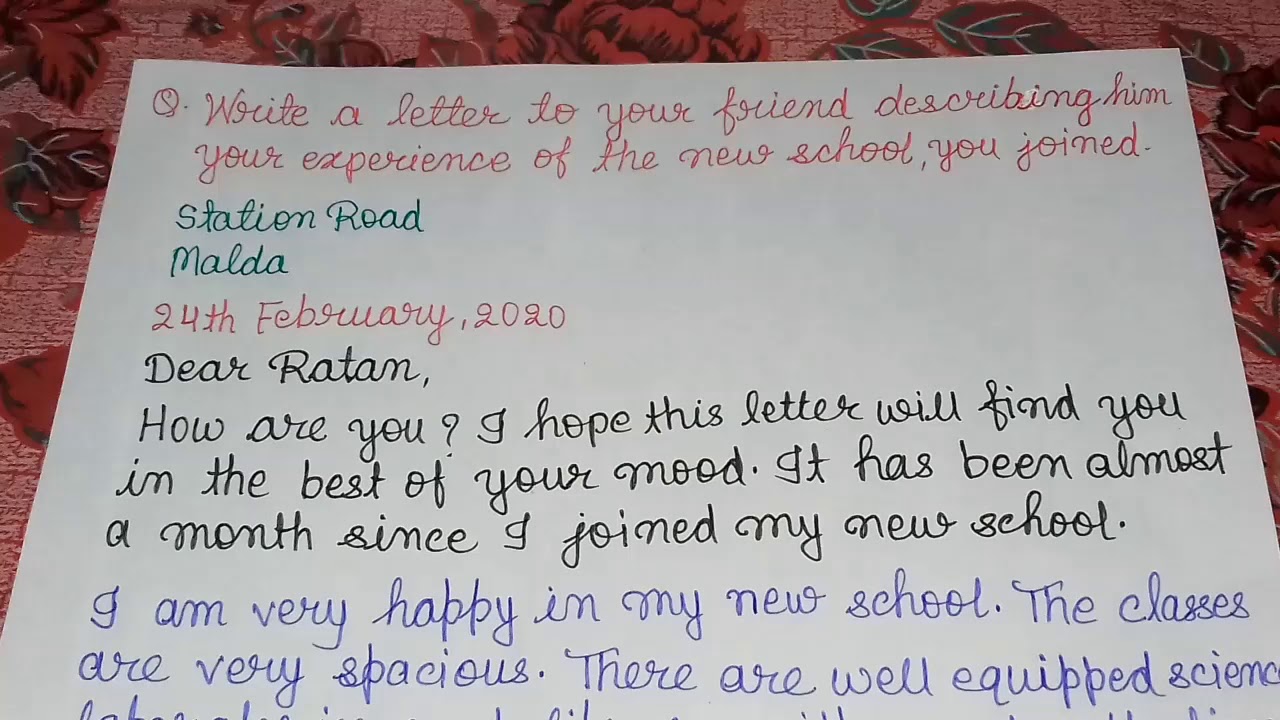 Q. Write a letter to your friend describing him
your experience of the new school, you joined.
Station Road
Malda
24th February, 2020
Dear Ratan,
How are you? I hope this letter will find you
in the best of your mood. It has been almost
a month since I joined my new school.
I am very happy in my new school. The classes
are very spacious. There are well equipped scienc